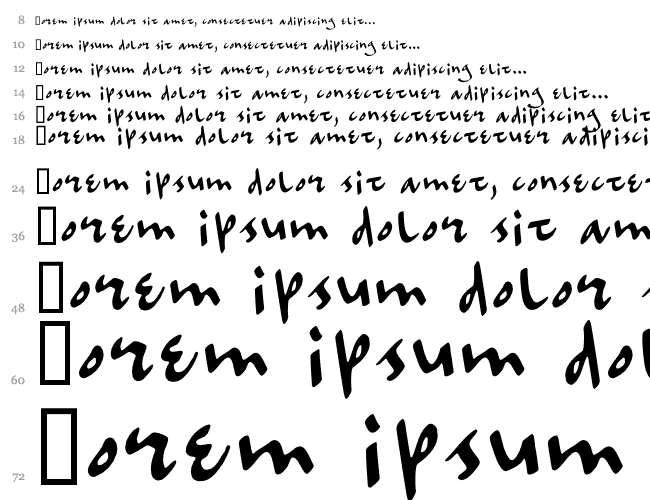 8 ▯orem ipsum dolor sit amet, consectetuer adipiscing elit...
10 ▯orem ipsum dolor sit amet, consectetuer adipiscing elit...
12 ▯orem ipsum dolor sit amet, consectetuer adipiscing elit...
14 ▯orem ipsum dolor sit amet, consectetuer adipiscing elit...
16 ▯orem ipsum dolor sit amet, consectetuer adipiscing elit
18 ▯orem ipsum dolor sit amet, consectetuer adipisci
24 ▯orem ipsum dolor sit amet, consectet
36 ▯orem ipsum dolor sit am
48 ▯orem ipsum dolor
60 ▯orem ipsum dol
72 ▯orem ipsum